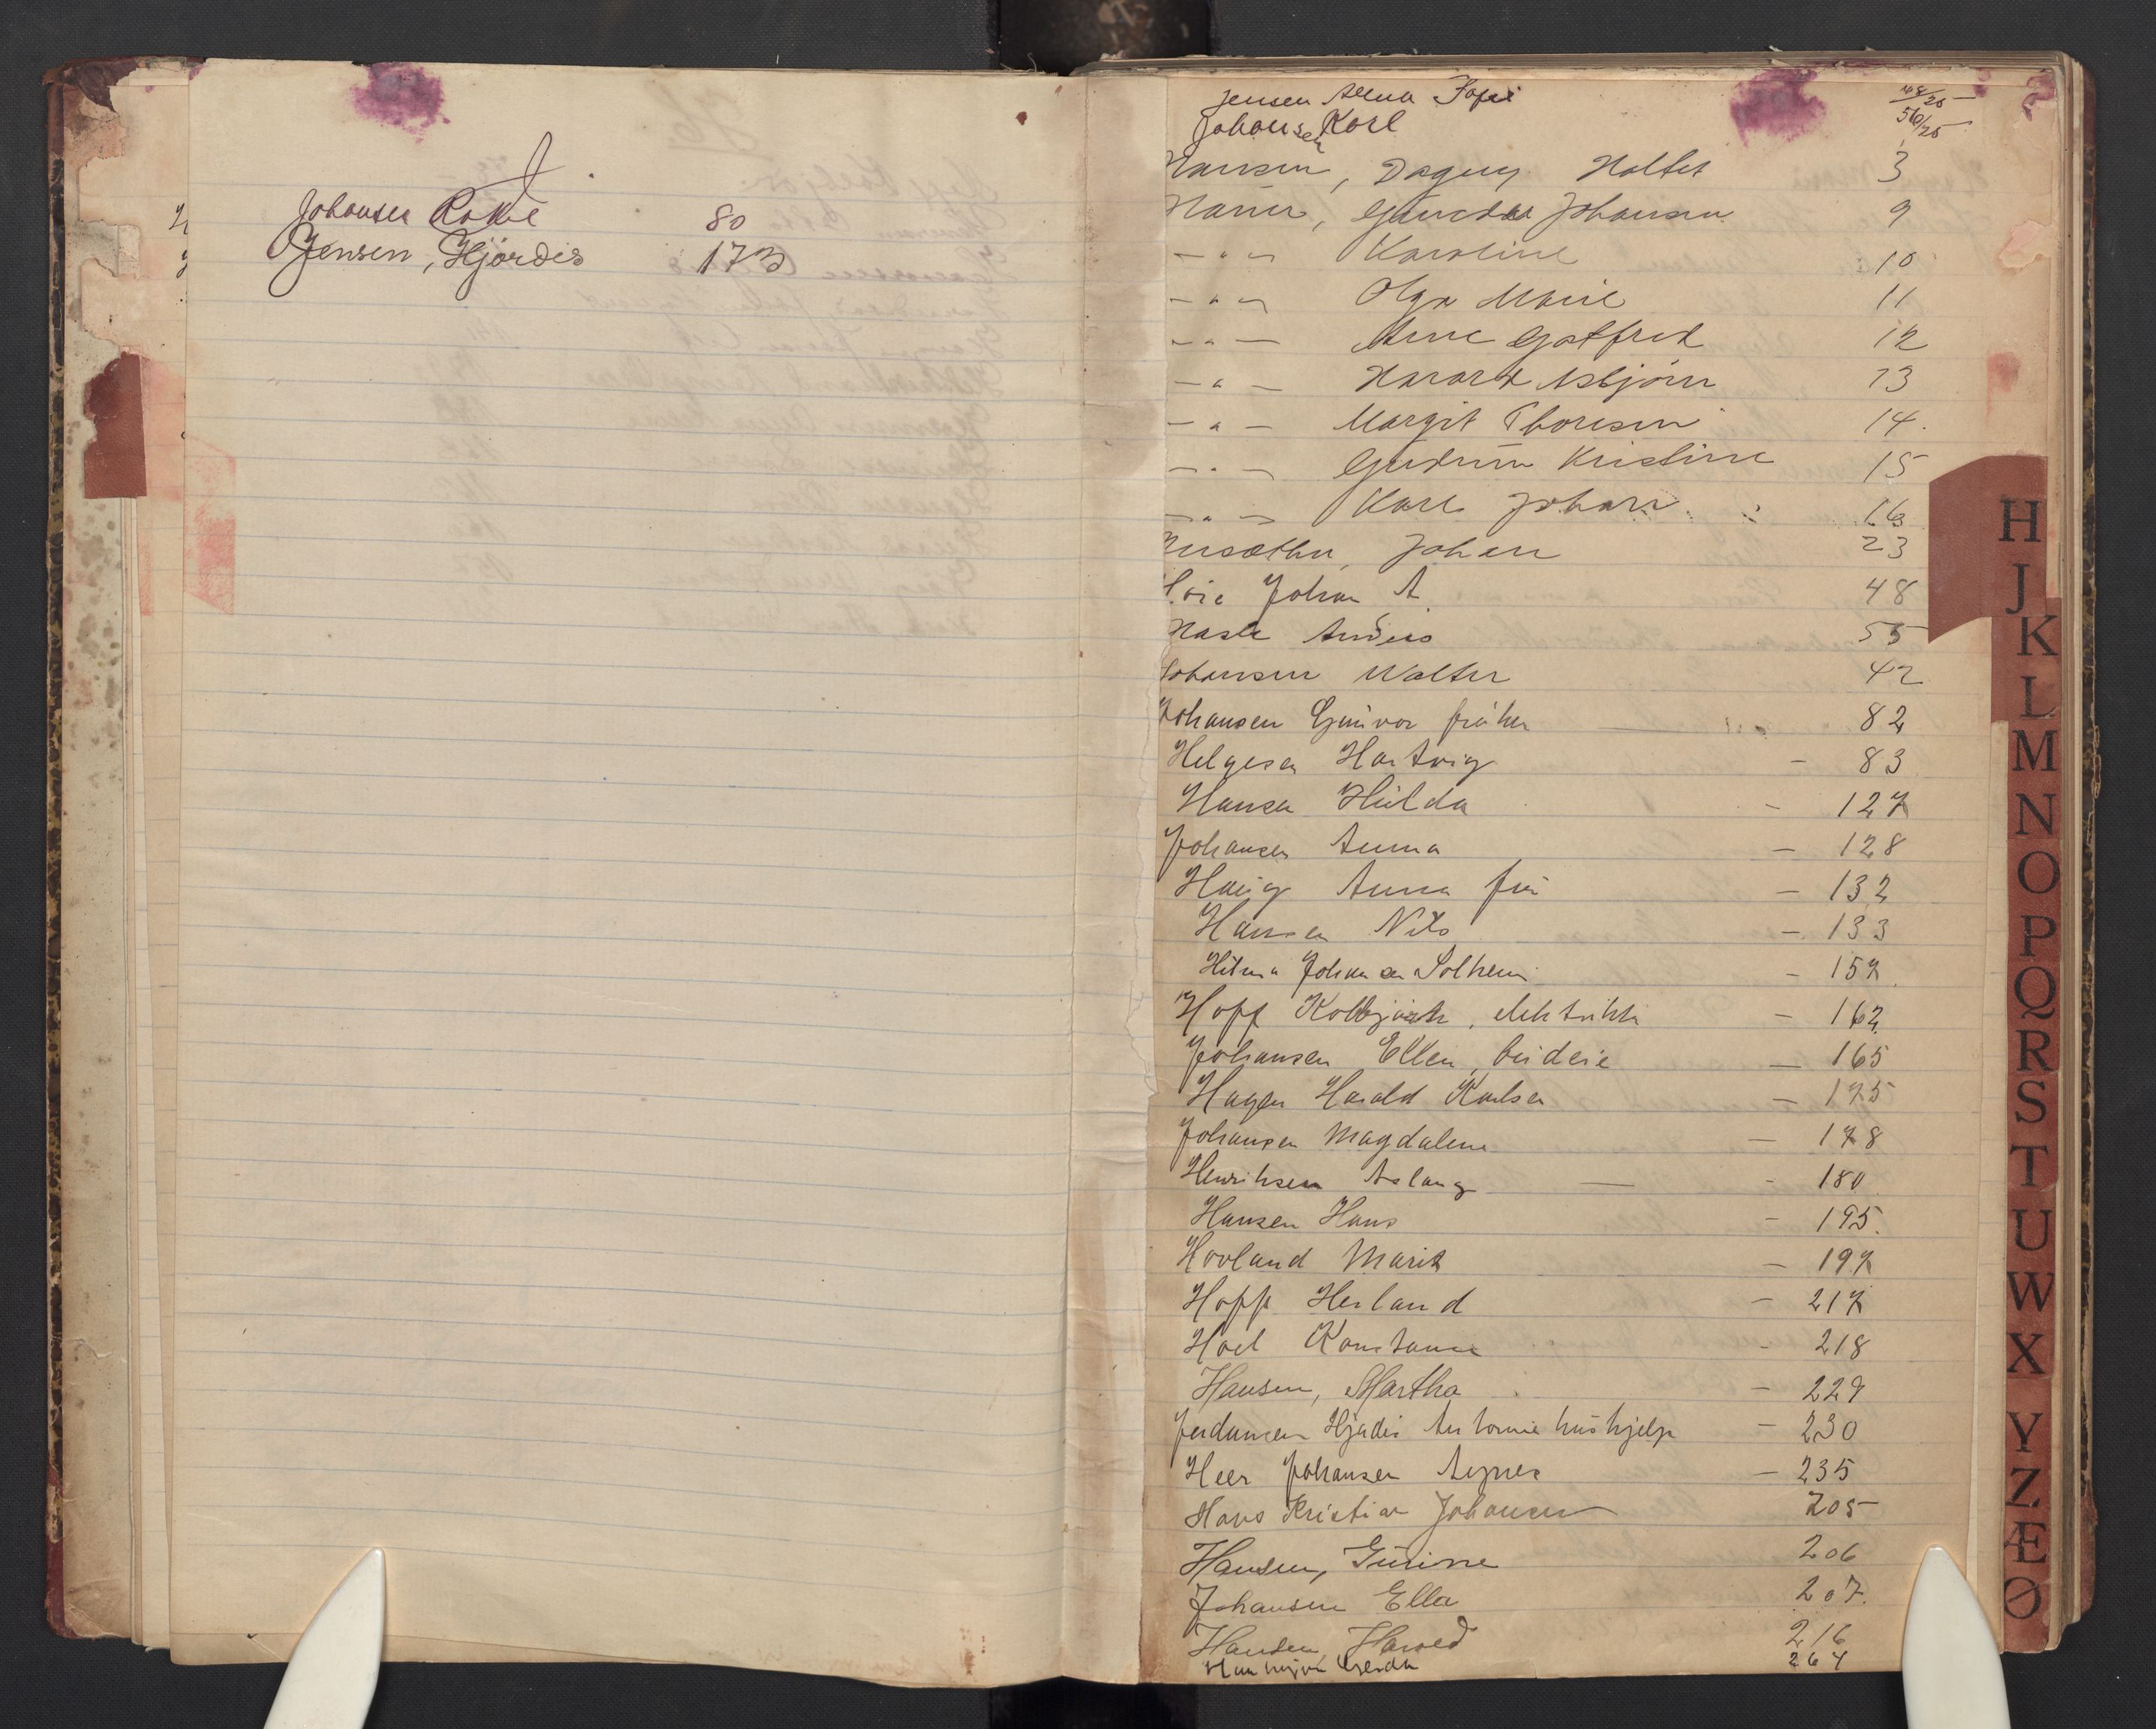 J
Johansen Rakel 80
Jensen, Hjördis 173
Jensen Anna Sofie 48/25
Johansen Karl 56/25
Hansen, Dagny Holtet 3
Hansen, Gunda Johansen 9
-"- Karoline 10
-"- Olga Marie 11
-"- Arne Gotfred 12
-"- Harard Asbjörn 13
-"- Margit Thoresen 14.
-"- Gudrun Kristine 15
-"- Karl Johan 16
Johan 23
Høie Johan A. 48
Hasle Anders 55
Johansen Walter 42
Johansen Gunvor frøken 82
Helgesen Hartvig - 83
Hansen Hulda - 127
Johansen Anna - 128
Haug Anna fru - 132
Hansen Nils - 133
Hilma Johansen Solheim - 157
Hopp Kolbjørn, elektriker - 162
Johansen Ellen, budeie - 165
Hagen Harald Karlsen - 175
Johansen Magdalene - 178
Henriksen Aslaug - 180
Hansen Hans - 195.
Hovland Marit - 197
Hopp Herland - 217
Hoel Konstanse - 218
Hansen, Martha - 229
Jordansen Hjødis Antonie hushjelp - 230
Heer Johansen Agnes - 235
Hans Kristian Johansen 205
Hansen, Gurine 206
Johansen Ella 207.
Hansen, Harald 216
Gerda 264
H
J
K
L
M
N
O
P
Q
R
S
T
U
W
X
Y
Z
Æ
Ø